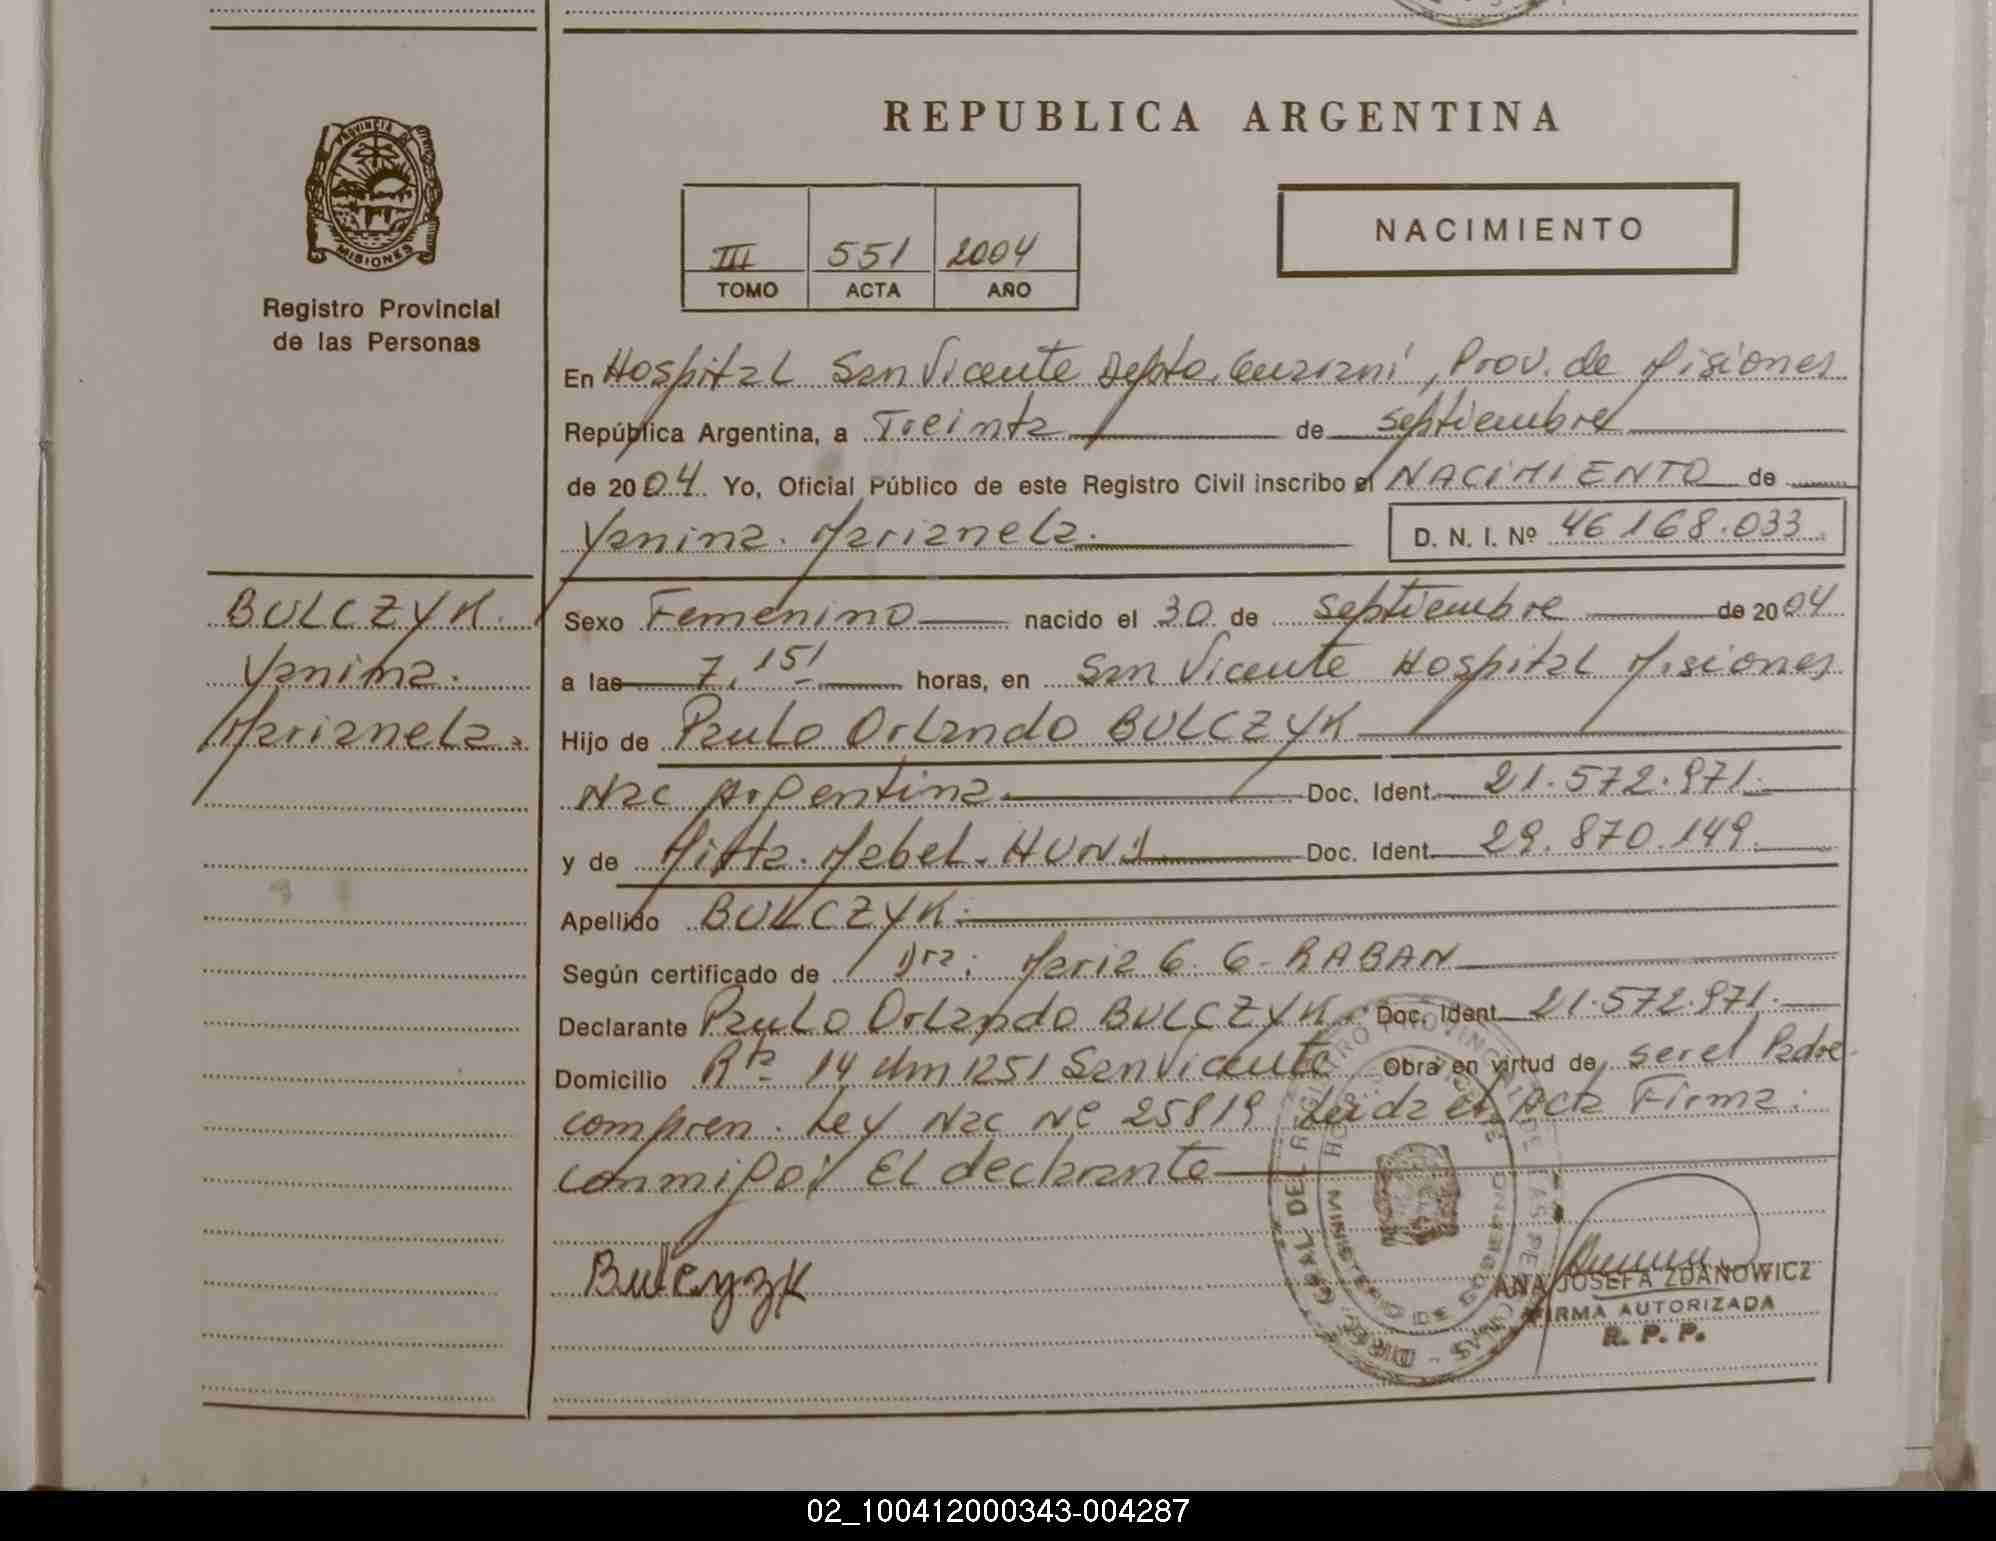 REPUBLICA ARGENTINA
PROVINCIA DE MISIONES
Registro Provincial
de las Personas
III 551 2004
TOMO ACTA AÑO
NACIMIENTO
En Hospital San Vicente Depto. Guaraní, Prov. de Misiones
República Argentina, a Treinta de septiembre
de 2004. Yo, Oficial Público de este Registro Civil inscribo el NACIMIENTO de
Yanina. Marianela. D. N. I. Nº 46168.033.
BULCZYK.
Yanina.
Marianela.
Sexo Femenino nacido el 30 de septiembre de 2004
a las 7,15 horas, en San Vicente Hospital Misiones
Hijo de Paulo Orlando BULCZYK
Nac Argentina. Doc. Ident. 21.572.971.
y de Mabel. Doc. Ident. 29.870.149.
Apellido BULCZYK.
Según certificado de Dra: Maria G. G. RABAN
Declarante Paulo Orlando BULCZYK. Doc. Ident. 21.572.971.
Domicilio Rta 14 Km 1251 San Vicente Obra en virtud de ser el Padre
compren. Ley Nac Nº 25819 Leida el Acta Firma.
conmigo: El declarante
Bulcyzk
ANA JOSEFA ZDANOWICZ
FIRMA AUTORIZADA
R. P. P.
02_100412000343-004287